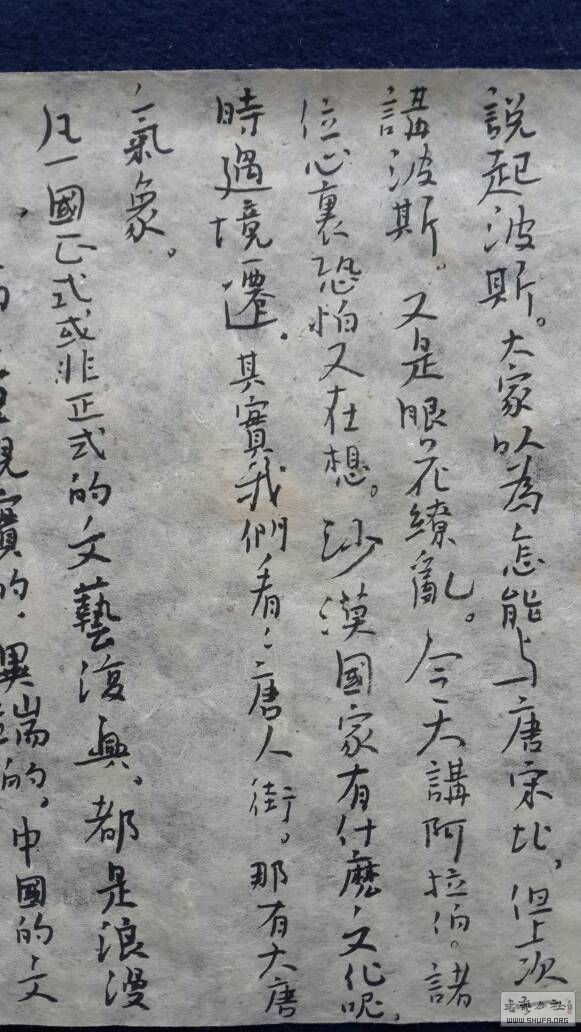 說起波斯。大家以為怎能与唐宋比,但上次
講波斯。又是眼花繚亂。今天講阿拉伯。諸
位心裏恐怕又在想。沙漠國家有什麽文化呢,
時過境遷。其實我們看々唐人街。那有大唐
之氣象。
凡一國正式或非正式的文藝復興。都是浪漫
現實的,異端的。中國的文
書法公社
WWW.SHUFA.ORG